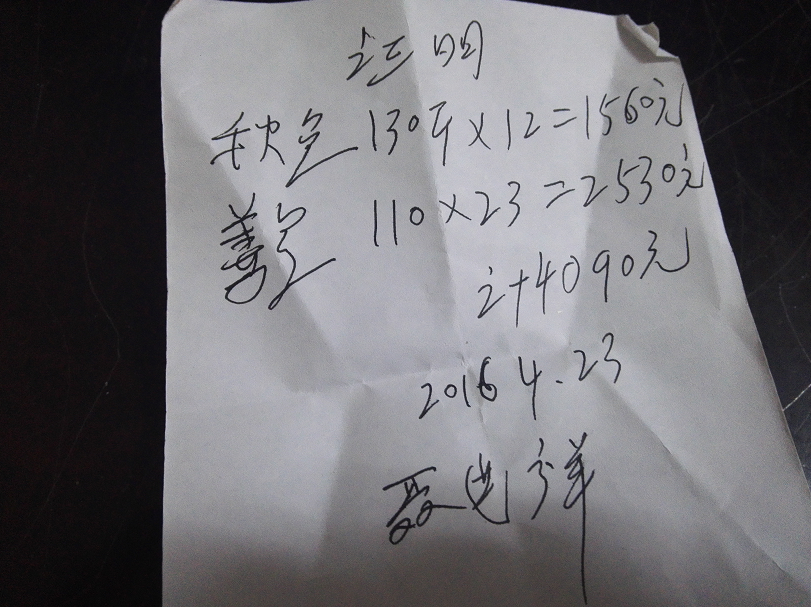 证明
秋色 130平×12=1560元
善宝 110×23=2530元
计4090元
2016 4.23